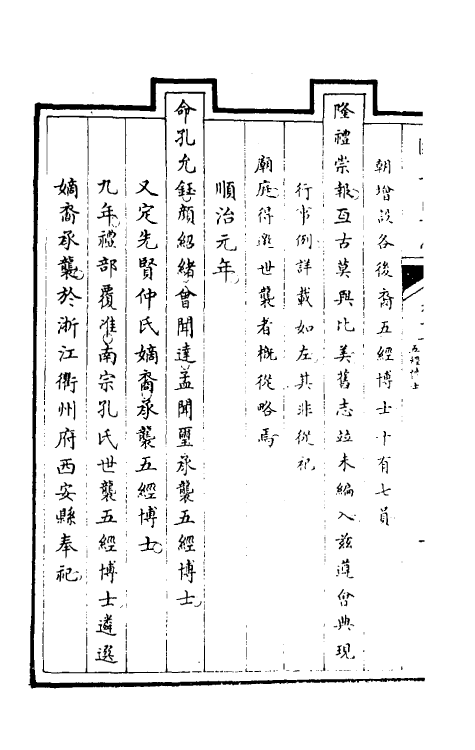 朝增設各後裔五經博士十有七員
隆禮崇報亙古莫與比美舊志竝未編入兹遵會典現
行事例詳載如左其非從祀
廟庭得邀世襲者概從略焉
順治元年
命孔允鈺顏紹緒曾聞達孟聞璽承襲五經博士
又定先賢仲氏嫡裔承襲五經博士
九年禮部覆准南宗孔氏世襲五經博士遴選
嫡裔承襲於浙江衢州府西安縣奉祀
五經博士